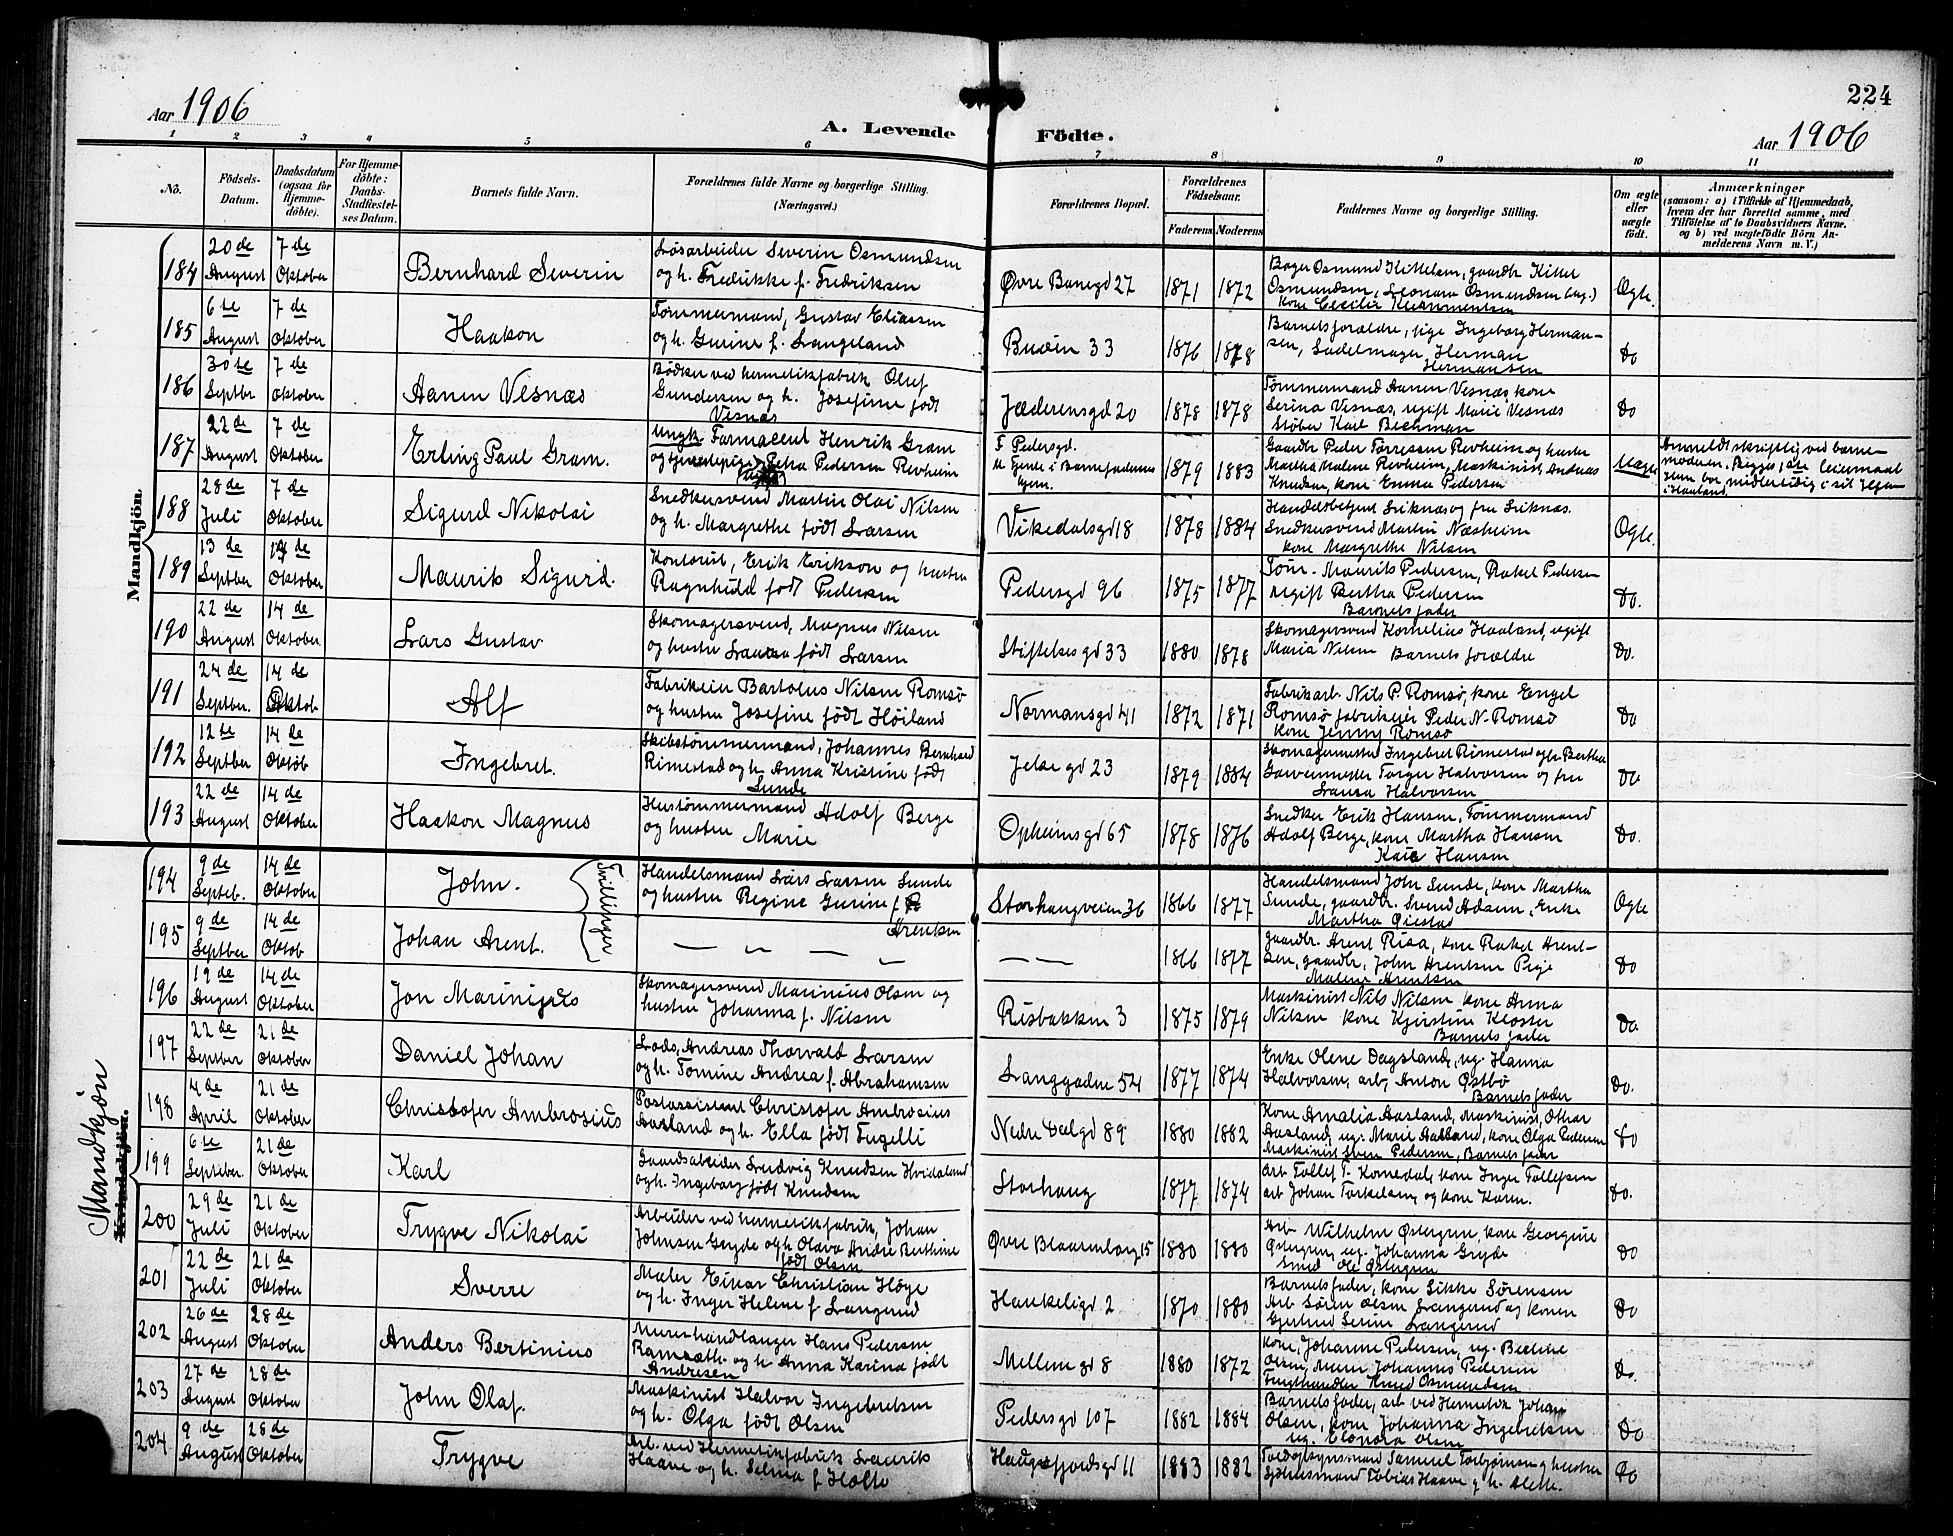 224
Aar 1906
A. Levende Födte.
Aar 1906
1 2 3 4 5 6 7 8 9 10 11
No.
Födsels-
Datum.
Daabsdatum
(ogsaa for
Hjemme-
döbte).
For Hjemme-
döbte:
Daabs-
Stadfæstel-
ses Datum.
Barnets fulde Navn.
Forældrenes fulde Navne og borgerlige Stilling.
(Næringsvei.)
Forældrenes Bopæl.
Forældrenes
Födselsaar.
Faderens Moderens
Faddernes Navne og borgerlige Stilling.
Om ægte
eller
uægte
födt.
Anmærkninger
(saasom: a) i Tilfælde af Hjemmedaab,
hvem der har forrettet samme, med
Tilföielse af to Daabsvidners Navne,
og b) ved uægtefödte Börn An-
melderens Navn m. V.)
Mandkjön.
184 20de August 7de Oktober Bernhard Severin
Løsarbeider Severin Osmundsen
og h. Fredrikke f. Fredriksen
Øvre Banegd 27 1871 1872
Bager Osmund Kittelsen, gaardbr Kittel
Osmundsen, Leonara Osmundsen (ug.)
Kone Cecilie Klemmentsen
Ægte.
185 6te August 7de Oktober Haakon
Tømmermand, Gustav Eliassen
og h. Gurine f. Langeland
Buøen 33 1876 1878
Barnets forældre, pige Ingeborg Herman-
sen, Sadelmager Herman
Hermansen
Do
186 30te Septbr 7de Oktober Aanen Vesnæs
Bødker ved hermetikfabrik Oluf
Gundersen og h. Josefine født
Vesnæs
Jæderensgd 20 1878 1878
Tømmermand Aanen Vesnæs, kone
Serina Vesnæs, ugift Marie Vesnæs
Støber Karl Bechman
Do
187 22de August 7de Oktober Erling Paul Gram.
Ungk. Farmaceut Henrik Gram
og Petra Pedersen Revheim
F Pedersgd.
1879 1883
Gaardbr Peder Torresen Revheim og hustru
Martha Malene Revheim, Maskinist Andreas
Knudsen, kone Emma Pedersen
Uægte
Anmeldt skriftlig ved barne-
moderen. Begges 1ste Leiermaal
188 28de Juli 7de Oktober Sigurd Nikolai
Snedkersvend Martin Olai Nilsen
og h. Margrethe født Larsen
Vikedalsgd 18 1878 1884
Handelsbetjent Liknæs og fru Liknæs.
Snedkersvend Martin Næsheim
kone Margrethe Nilsen
Ægte.
189 13de Septber 14de Oktober Maurits Sigurd.
Kontorist, Erik Erikson og hustru
Ragnhild født Pedersen
Pedersgd 96 1875 1877
Maurits Pedersen, Rakel Pedersen
ugift Bertha Pedersen
Barnets fader
Do.
190 22de August 14de Oktober Lars Gustav
Skomagersvend, Magnus Nilsen
og hustru Laura født Larsen
Stiftelsesgd 33 1880 1878
Skomagersvend Kornelius Haaland, ugift
Maria Nilsen Barnets forældre
Do.
191 24de Septber. 14de Oktob Alf
Fabrikeier Bartolus Nilsen Romsø
og hustru Josefine født Høiland
Normansgd 41 1872 1871
Fabrikarb. Nils P. Romsø, kone Engel
Romsø fabrikeier Peder N. Romsø
kone Jenny Romsø
Do
192 12te Septber 14de Oktob Ingebret.
Skibstømmermand, Johannes Bernhard
Rimestad og h. Anna Kristine født
Sunde
Jelse gd 23 1879 1884
Skomagermester Ingebret Rimestad og h. Bertha
Garvermester Torger Halvorsen og fru
Laura Halvorsen
Do
193 22de August 14de Oktober Haakon Magnus
Hustømmermand Adolf Berge
og hustru Marie
Opheimsgd 65 1878 1876
Snedker Erik Hansen, Tømmermand
Adolf Berge, kone Martha Hansen
Hansen
Do.
Mandkjøn
Kvindekjön.
194 9de Septeb. 14de Oktober John. Tvillinger
Handelsmand Lars Larsen Sunde
og hustru Regine Gurine f.
Arentsen
Storhaugveien 36 1866 1877
Handelsmand John Sunde, kone Martha
Sunde, gaardbr. Svend Adsen, Enke
Martha Øiestad
Ægte
195 9de Septber 14de Oktob Johan Arent.
— " — "
— —
1866 1877
gaardbr. Arent Risa, kone Rakel Arent-
sen, gaardbr, John Arentsen Pige
Malene Arentsen
Do
196 19de August 14de Oktober Jon Marinius
Skomagersvend Marinius Olsen og
hustru Johanna f. Nilsen
Risbakken 3 1875 1879
Maskinist Nils Nilsen kone Anna
Nilsen kone Kjerstine Kloster
Barnets fader
Do.
197 22de Septber 21de Oktober Daniel Johan
Lods, Andreas Thorvald Larsen
og h. Tomine Andrea f. Abrahamsen
Langgaden 54 1877 1874
Enke Olene Dagsland, ug. Hanna
Halvorsen, arb, Anton Østbø
Barnets fader
Do.
198 4de April 21de Oktober Christofer Ambrosius
Postassistent Christofer Ambrosius
Aasland og h. Ella født Fugelli
Nedre Dalgd 89 1880 1882
Kone Amalia Aasland, Maskinist, Othar
Aasland, ug. Marie Aasland, kone Olga Pedersen
Maskinist Pedersen, Barnets fader
Do
199 6te Septber. 21de Oktober Karl
Gaardsarbeider Ludvig Knudsen Hvidaland
og h. Ingeborg født Knudsen
Storhaug 1877 1874
arb Tollef T. Komedal, kone Inger Tollefsen
arb Johan Torkelsen, og kone Karen.
Do.
200 29de Juli 21de Oktober Trygve Nikolai
Arbeider ved hermetikfabrik, Johan
Johnsen Gryde og h. Olava Andrea Berthine
født Olsen
Øvre Blaasenborg 15 1880 1880
Arb Wilhelm Østergren, kone Georgine
Østergren, ug. Johanna Gryde
Smed Ole Østergren
Do
201 22de Juli 21de Oktober Sverre
Maler Einar Christian Høye
og h. Inger Helene f. Langerud
Haukeligd 2 1870 1880
Barnets fader, kone Sikke Sørensen
Arb Søren Olsen Langerud og konen
Gjertrud Serine Langerud
Do
202 26de August 28de Oktober Anders Bertinius
Murerhandlanger Hans Pedersen
Ramsæth. og h. Anna Karina født
Andresen
Mellem gd 8 1880 1872
Kone, Johanne Pedersen, ug. Bertine
Olsen, Murer Johannes Pedersen
Frugthandler Knud Osmundsen
Do.
203 27de August 28de Oktober John Olaf.
Maskinist Halvor Ingebretsen
og h. Olga født Olsen
Pedersgd 107 1882 1884
Barnets fader, arb ved Hermetik Johan
Olsen, kone Johanna Ingebretsen
ug. Elonora Olsen
Do
204 9de August 28de Oktober Trygve
Arb. ved Hermetikfabrik Lauritz
Haave og h. Selma f. Holte
Haugesfjordsgd 11 1883 1882
Toldopsynsmand Samuel Torbjørnsen og hustru
Tobias Haave og h. Mette.
Do